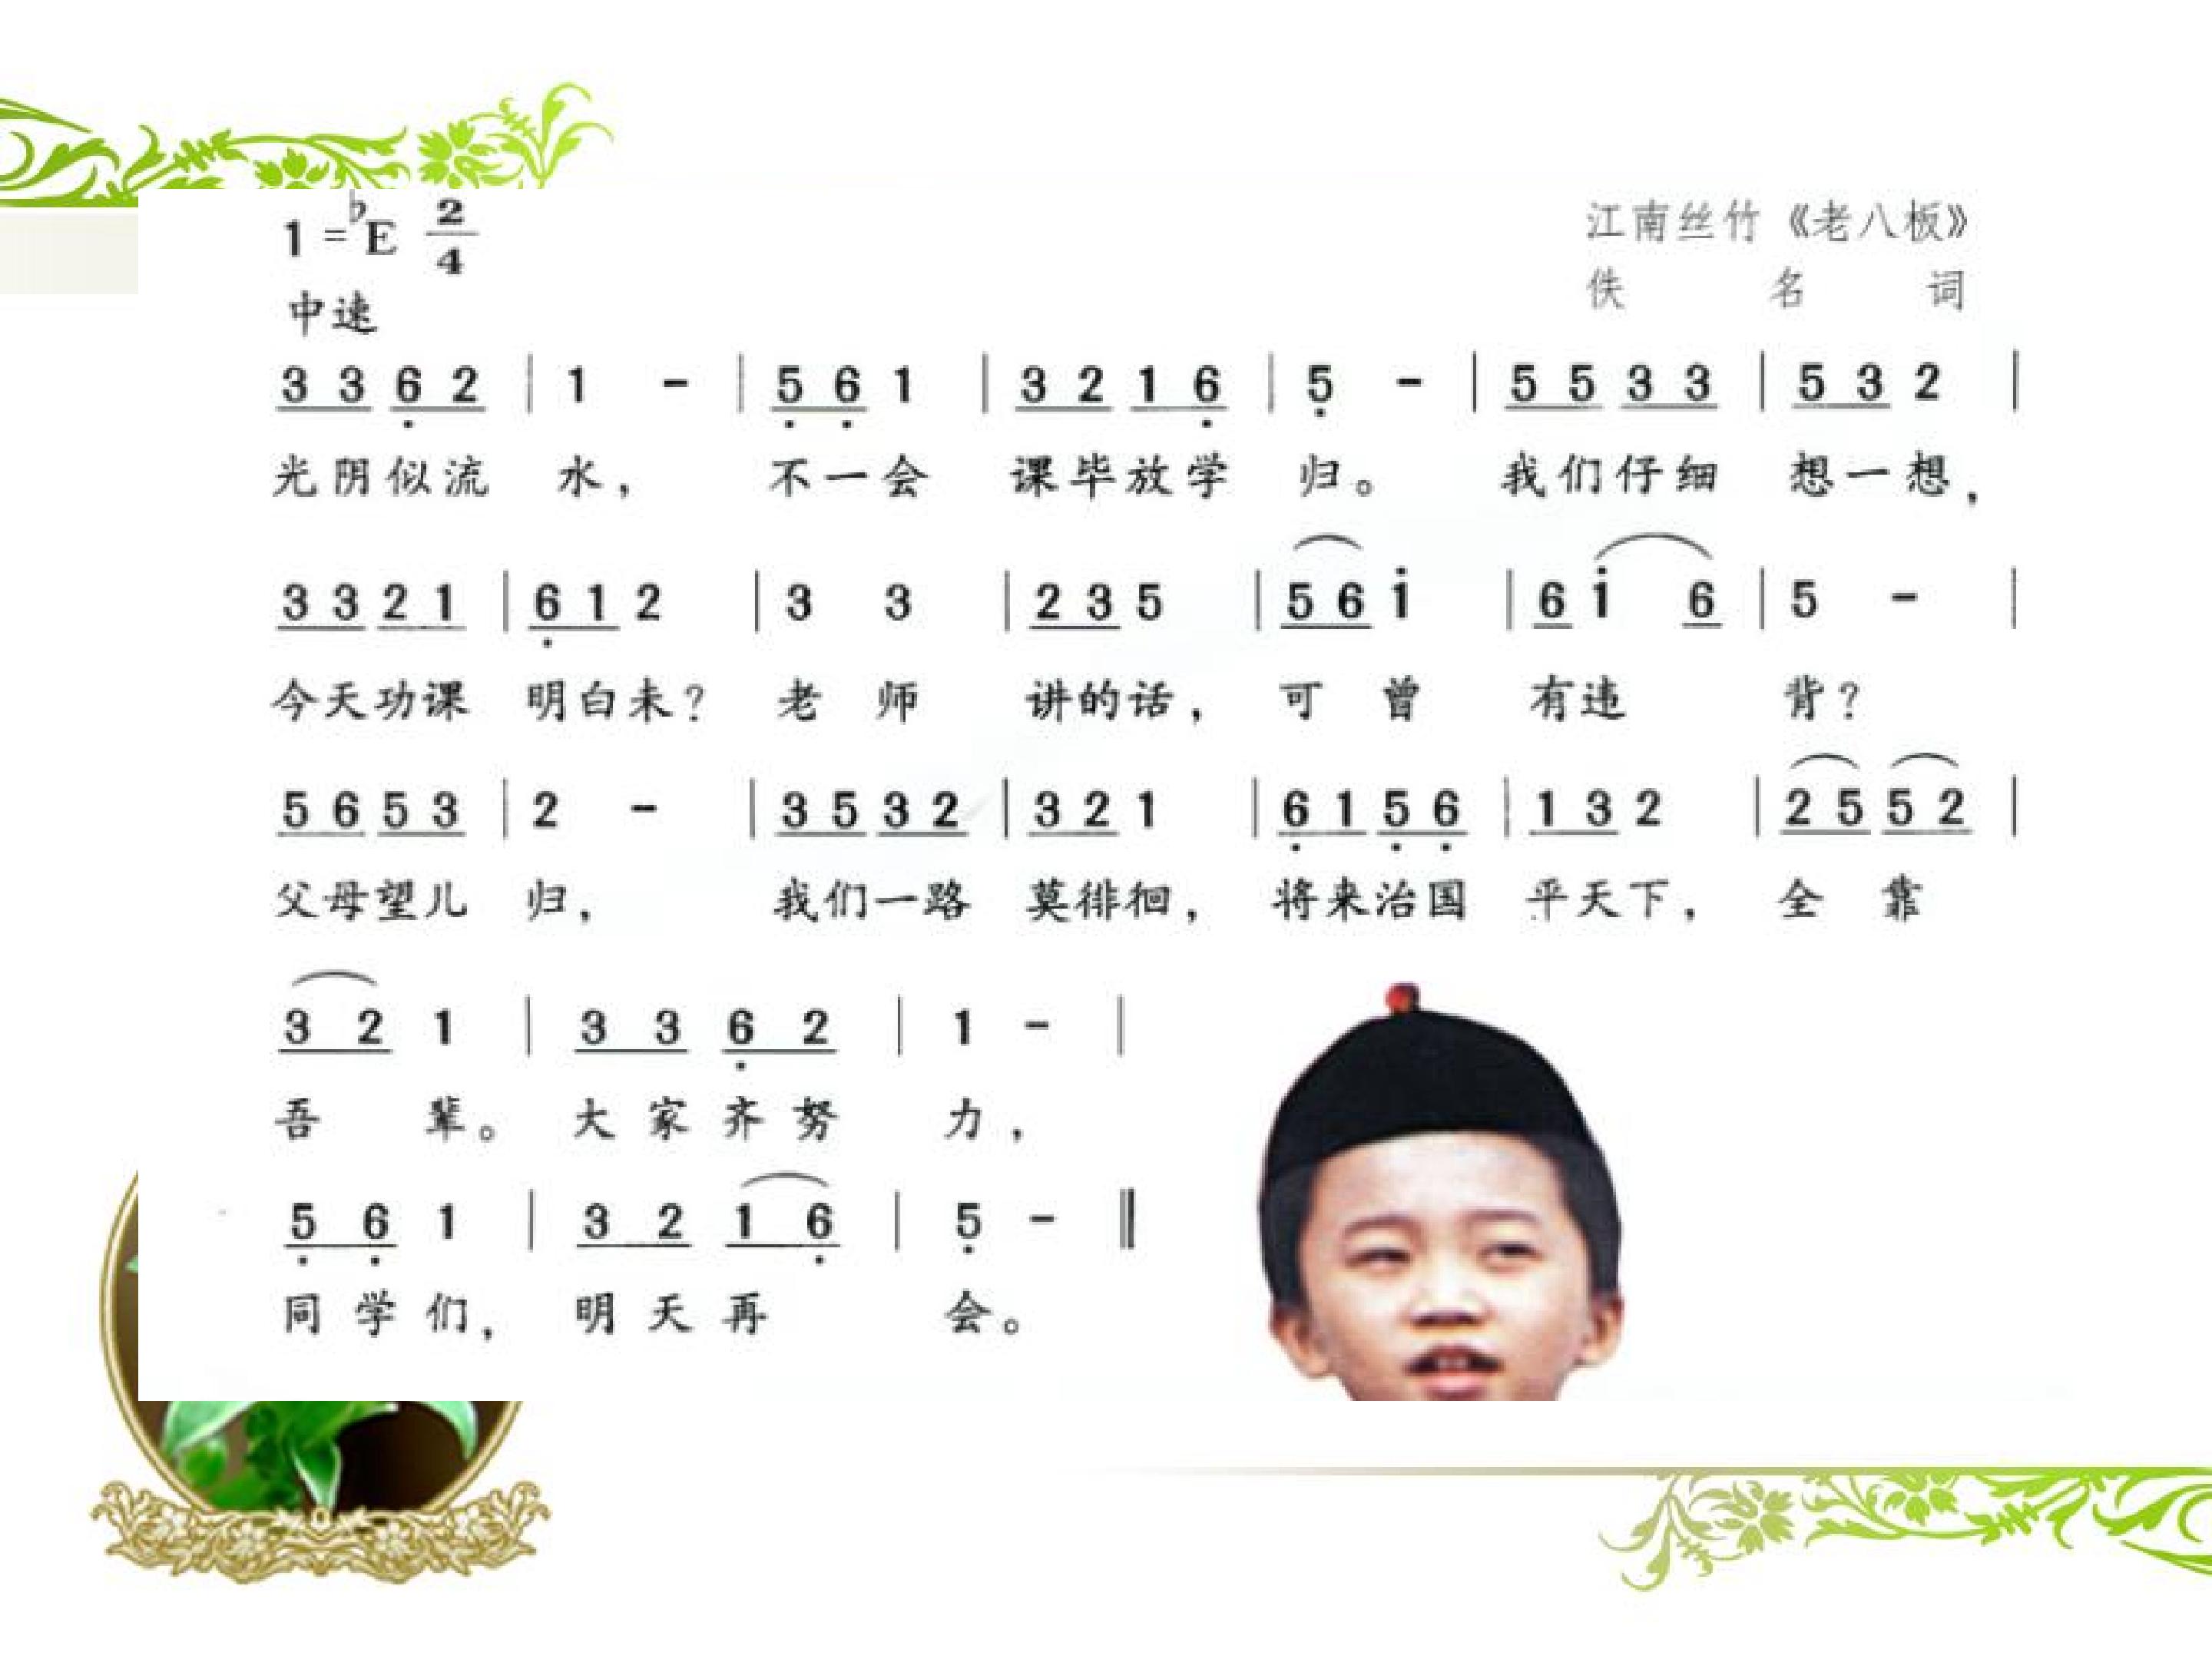 1=♭E 2/4
江南丝竹《老八板》
佚 名 词
中速
3 3 6̣ 2 | 1 - | 5̣ 6̣ 1 | 3 2 1 6̣ | 5̣ - | 5 5 3 3 | 5 3 2 |
光阴似流 水， 不一会 课毕放学 归。 我们仔细 想一想，
3 3 2 1 | 6̣ 1 2 | 3 3 | 2 3 5 | 5 6 1̇ | 6 1̇ 6 | 5 - |
今天功课 明白未？ 老 师 讲的话， 可 曾 有违 背？
5 6 5 3 | 2 - | 3 5 3 2 | 3 2 1 | 6̣ 1 5̣ 6̣ | 1 3 2 | 2 5 5 2 |
父母望儿 归， 我们一路 莫徘徊， 将来治国 平天下， 全 靠
3 2 1 | 3 3 6̣ 2 | 1 - |
吾 辈。 大家齐努 力，
5̣ 6̣ 1 | 3 2 1 6̣ | 5̣ - ‖
同学们， 明天再 会。